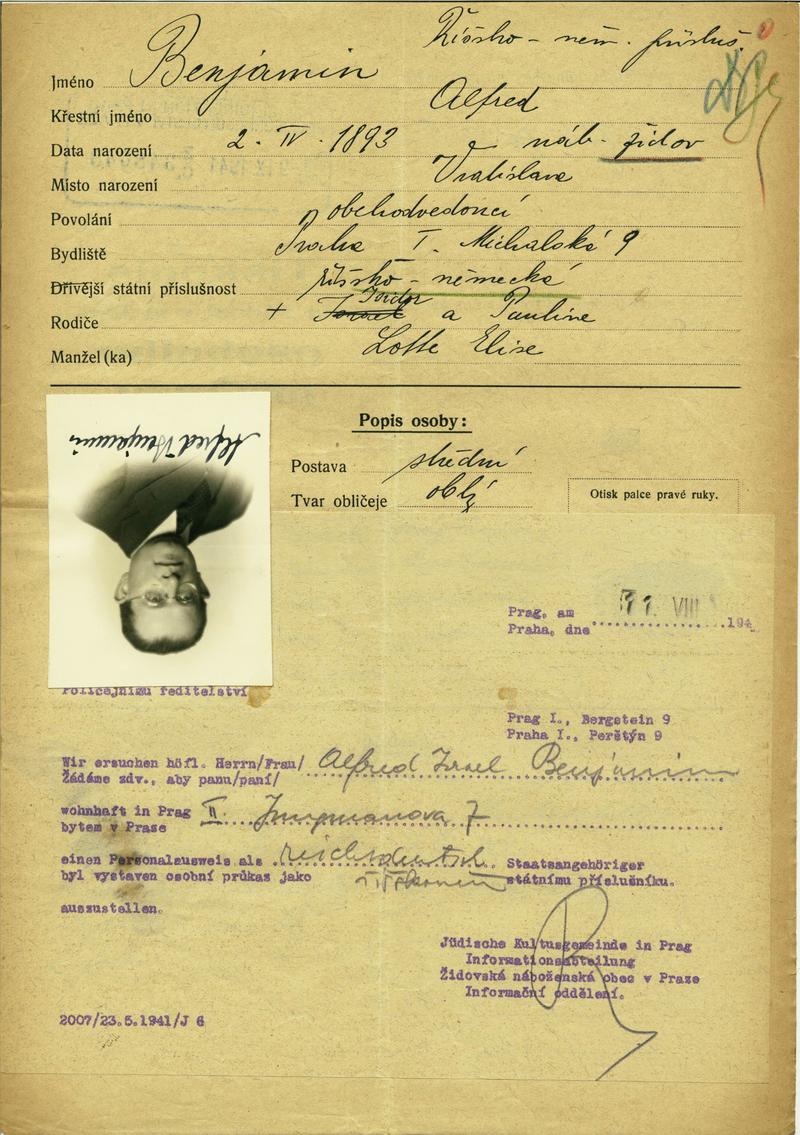 Říšsko - něm. přísluš.
Jméno Benjamin
Křestní jméno Alfred
Data narození 2. IV. 1893 náb. židov
Místo narození Vratislava
Povolání obchodvedoucí
Bydliště Praha I. Michalská 9
Dřívější státní příslušnost říšsko - německá
Rodiče + Israel Isidor a Pauline
Manžel (ka) Lotte Elise
Popis osoby:
Alfred Benjamin
Postava střední
Tvar obličeje oblý
Otisk palce pravé ruky.
Prag, am VIII
Praha, dne 194
Policejnímu ředitelství
Prag I., Bergstein 9
Praha I., Perštýn 9
Wir ersuchen höfl. Herrn/Frau/ Alfred Israel Benjamin
Žádáme zdv., aby panu/paní/
wohnhaft in Prag II. Jungmanova 7
bytem v Praze
einen Personalausweis als reichsdeutsch. Staatsangehöriger
byl vystaven osobní průkaz jako státnímu příslušníku.
auszustellen.
Jüdische Kultusgemeinde in Prag
Informationsabteilung
Židovská náboženská obec v Praze
Informační oddělení.
2007/23.5.1941/J 6